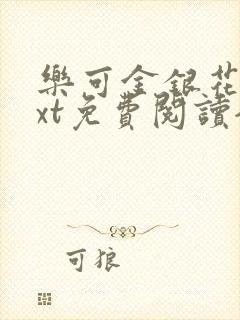 樂可金銀花
xt免費閱讀
可狼